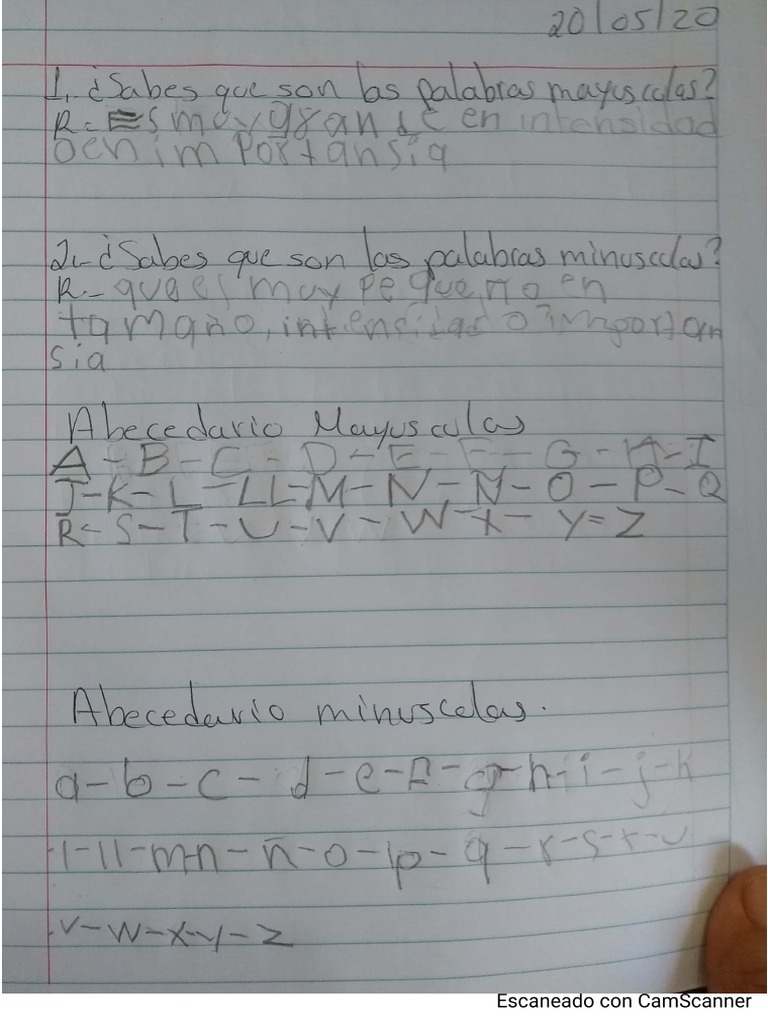 20/05/20
1. ¿Sabes que son las palabras mayusculas?
R= Es muy grande en intensidad
o en importansia
2.- ¿Sabes que son las palabras minusculas?
R- que es muy pequeño en
tamaño, intensidad o importan
sia
Abecedario Mayusculas
A - B - C - D - E - F - G - H - I
J - K - L - LL - M - N - Ñ - O - P - Q
R - S - T - U - V - W - X - Y = Z
Abecedario minusculas.
a - b - c - d - e - f - g - h - i - j - k
l - ll - m - n - ñ - o - p - q - r - s - t - u
v - w - x - y - z
Escaneado con CamScanner